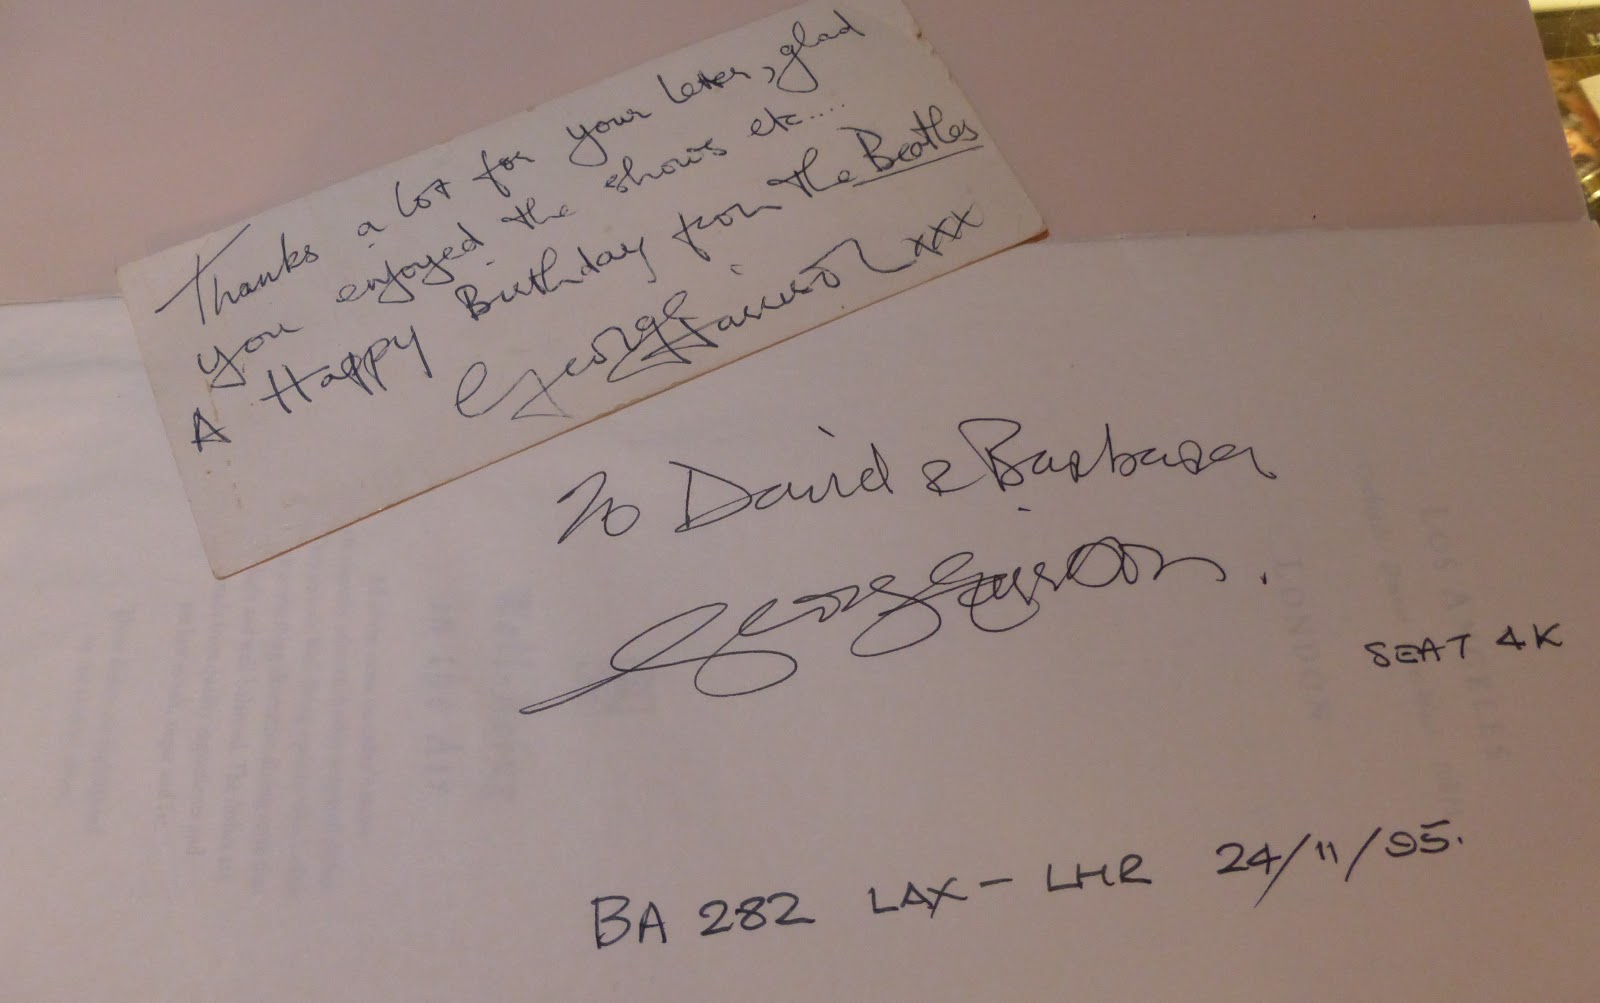 Thanks a lot for your letter, glad
you enjoyed the shows etc....
A Happy Birthday from the Beatles
George Harrison xxx
To David & Barbara
George Harrison.
SEAT 4K
BA 282 LAX - LHR 24/11/95.
LOS ANGELES
LONDON
in the Air